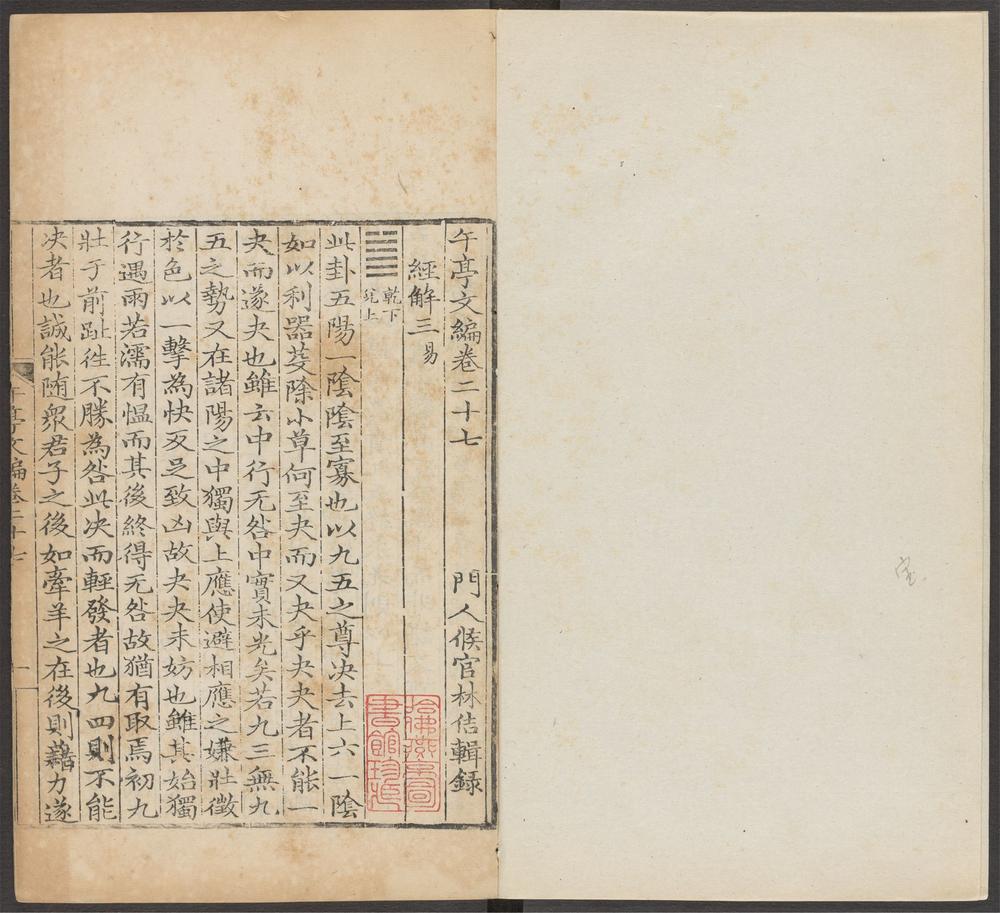 午亭文編卷二十七
門人候官林佶輯錄
經解三易
乾下
兌上
此卦五陽一陰陰至寡也以九五之尊決去上六一陰
如以利器芟除小草何至夬而又夬乎夬夬者不能一
夬而遂夬也雖云中行无咎中實未光矣若九三無九
五之勢又在諸陽之中獨與上應使避相應之嫌壯徵
於色以一擊為快反足致凶故夬夬未妨也雖其始獨
行遇雨若濡有愠而其後終得无咎故猶有取焉初九
壯于前趾徃不勝為咎此決而輕發者也九四則不能
决者也誠能随衆君子之後如牽羊之在後則藉力遂
午亭文編卷二十七
一
哈佛燕京圖
書館珍藏